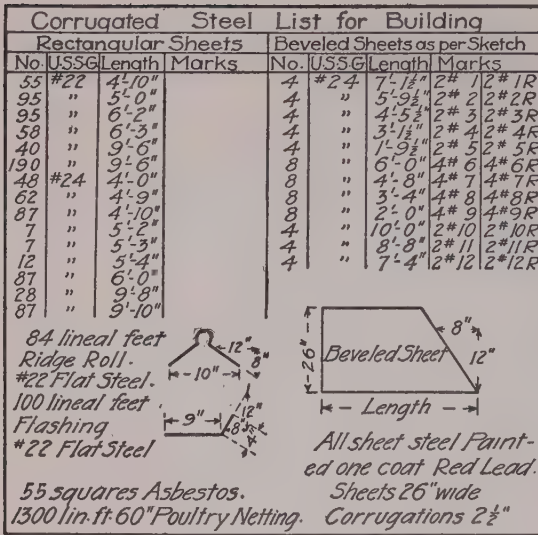 Corrugated Steel List for Building
Rectangular Sheets
No. U.S.S.G Length Marks
55 #22 4'-10"
95 " 5'-0"
95 " 6'-2"
58 " 6'-3"
40 " 9'-6"
190 " 9'-6"
48 #24 4'-0"
62 " 4'-9"
87 " 4'-10"
7 " 5'-2"
7 " 5'-3"
12 " 5'-4"
87 " 6'-0"
28 " 9'-8"
87 " 9'-10"
Beveled Sheets as per Sketch
No. U.S.S.G Length Marks
4 #24 7'-1½" 2# 1 2# 1R
4 " 5'-9½" 2# 2 2# 2R
4 " 4'-5½" 2# 3 2# 3R
4 " 3'-1½" 2# 4 2# 4R
4 " 1'-9½" 2# 5 2# 5R
8 " 6'-0" 4# 6 4# 6R
8 " 4'-8" 4# 7 4# 7R
8 " 3'-4" 4# 8 4# 8R
8 " 2'-0" 4# 9 4# 9R
4 " 10'-0" 2#10 2#10R
4 " 8'-8" 2#11 2#11R
4 " 7'-4" 2#12 2#12R
84 lineal feet
Ridge Roll.
#22 Flat Steel.
12"
8"
10"
100 lineal feet
Flashing
#22 Flat Steel
9"
12"
8"
4"
26"
Beveled Sheet
8"
12"
Length
55 squares Asbestos.
1300 lin. ft. 60" Poultry Netting.
All sheet steel Paint-
ed one coat Red Lead.
Sheets 26" wide
Corrugations 2½"